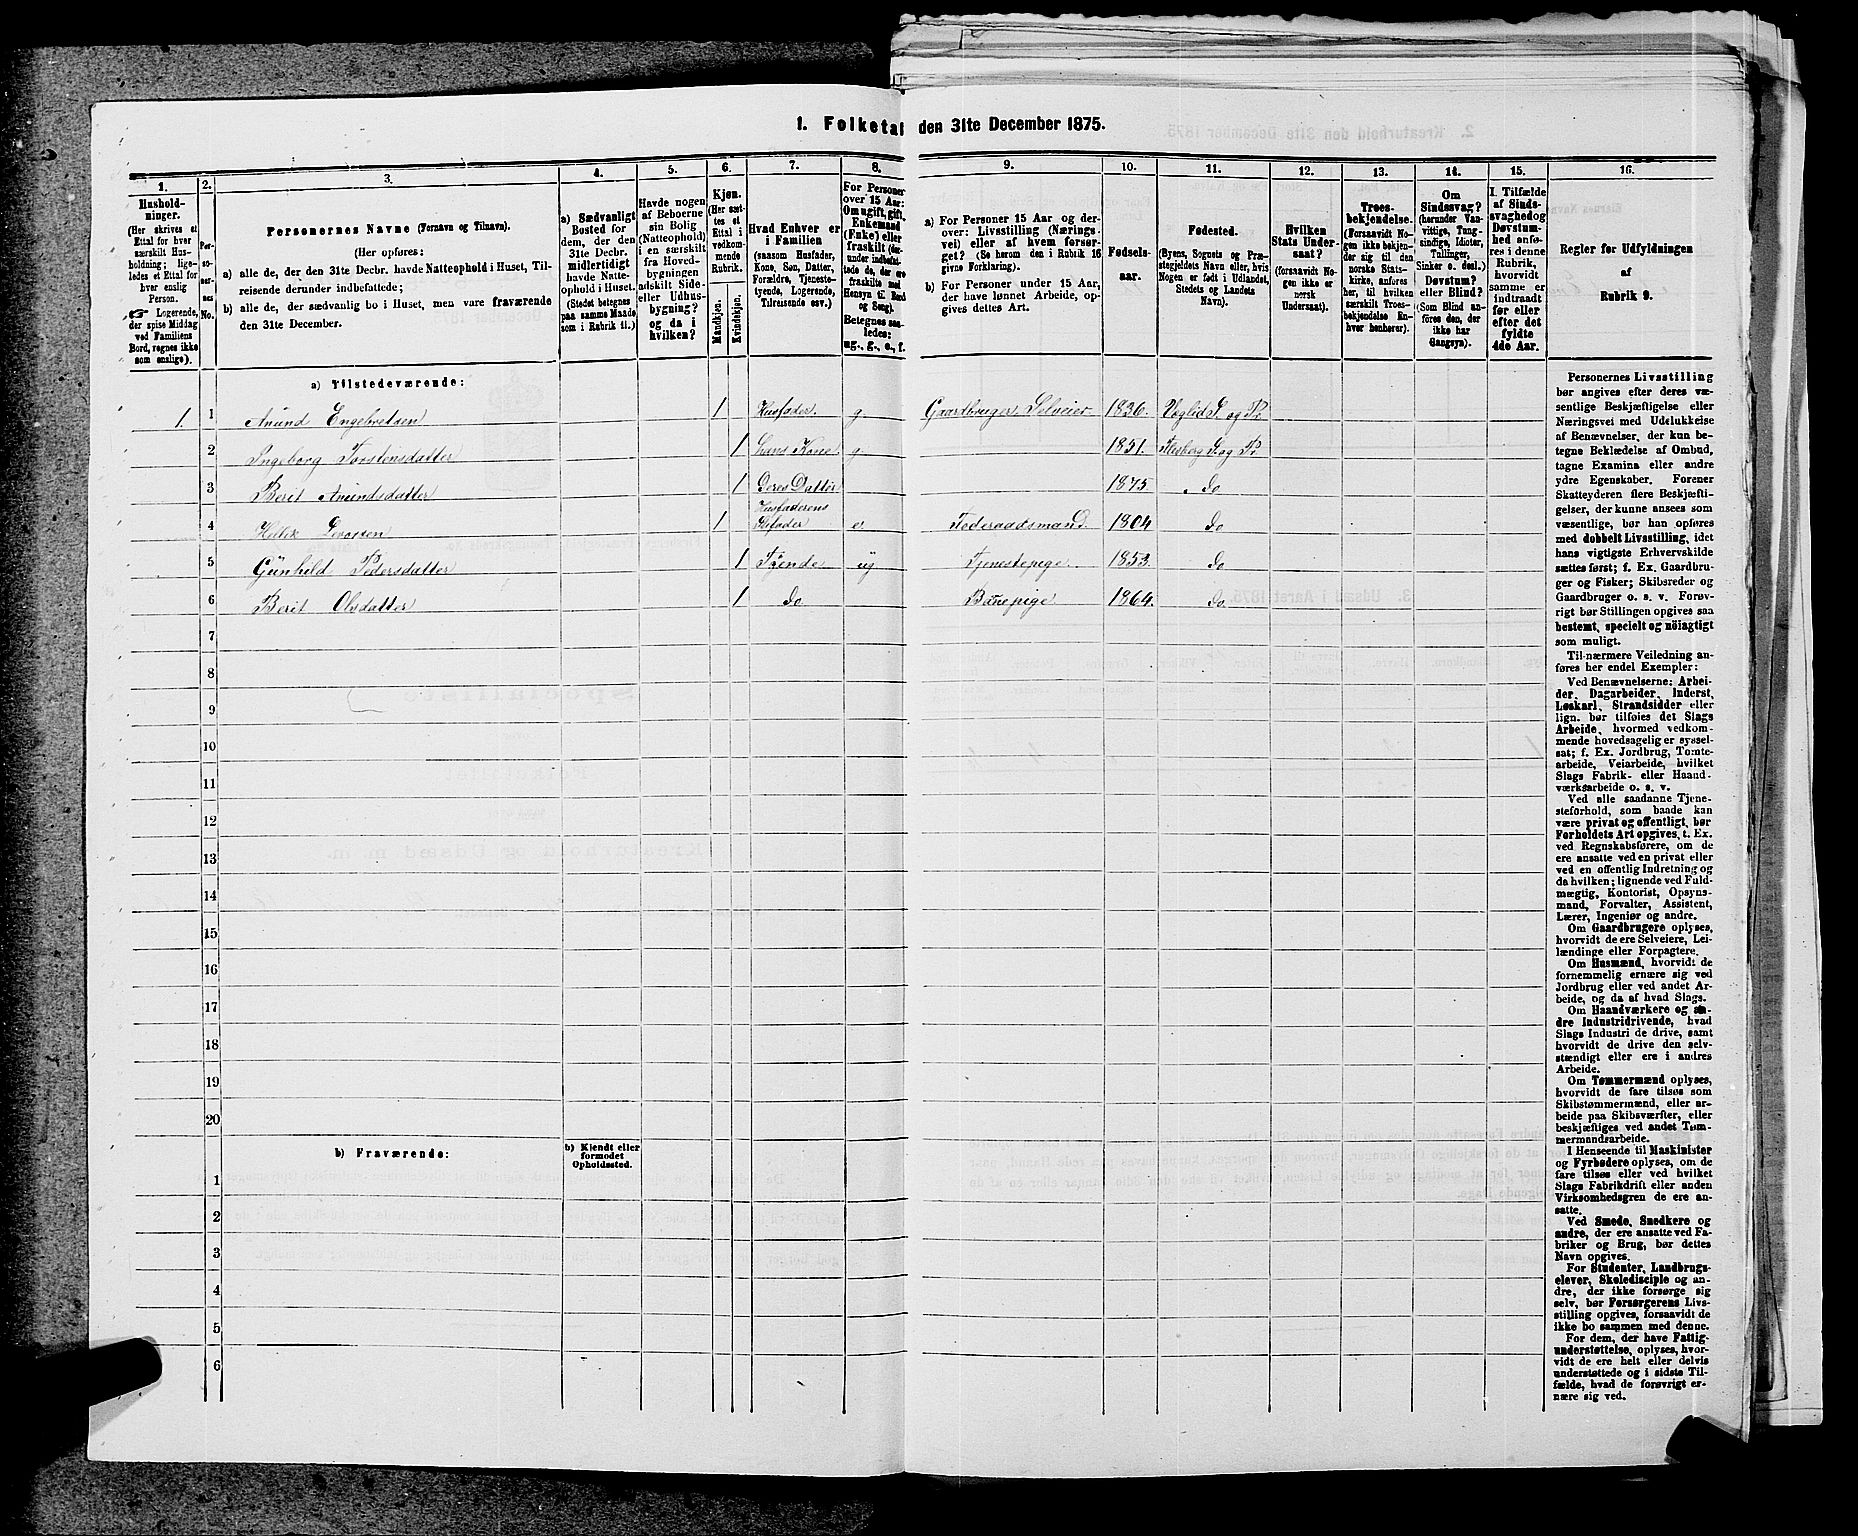 1. Folketal den 31te December 1875.
1. Husholdninger. (Her skrives et Ettal for hver særskilt Husholdning; ligeledes et Ettal for hver enslig Person. Logerende, der spise Middag ved Familiens Bord, regnes ikke som enslige).
2. Personernes No.
3. Personernes Navne (Fornavn og Tilnavn).
(Her opføres:
a) alle de, der den 31te Decbr. havde Natteophold i Huset, Tilreisende derunder indbefattede;
b) alle de, der sædvanlig bo i Huset, men vare fraværende den 31te December.
4. a) Sædvanligt Bosted for dem, der den 31te Decbr. midlertidigt havde Natteophold i Huset. (Stedet betegnes paa samme Maade som i Rubrik 11.)
5. Havde nogen af Beboerne sin Bolig (Natteophold) i en særskilt fra Hovedbygningen adskilt Side- eller Udhusbygning? og da i hvilken?
6. Kjøn. (Her sættes et Ettal i vedkommende Rubrik.
Mandkjøn. Kvindekjøn.
7. Hvad Enhver er i Familien (saasom Husfader, Kone, Søn, Datter, Forældre, Tjenestetyende, Logerende, Tilreisende osv.)
8. For Personer over 15 Aar: Om ugift, gift, Enkemand (Enke) eller fraskilt (derunder indbefattede de, der ere fraskilte med Hensyn til Bord og Seng). Betegnes saaledes: ug., g., e., f.
9. a) For Personer 15 Aar og derover: Livsstilling (Næringsvei) eller af hvem forsørget? (Se herom den i Rubrik 16 givne Forklaring).
b) For Personer under 15 Aar, der have lønnet Arbeide, opgives dettes Art.
10. Fødselsaar.
11. Fødested. (Byens, Sognets og Præstegjeldets Navn eller, hvis Nogen er født i Udlandet, Stedets og Landets Navn).
12. Hvilken Stats Undersaat? (forsaavidt Nogen ikke er norsk Undersaat).
13. Troesbekjendelse. (Forsaavidt Nogen ikke bekjender sig til den norske Statskirke, anføres her, til hvilken særskilt Troesbekjendelse Enhver henhører).
14. Om Sindssvag? (herunder Vanvittige, Tungsindige, Idioter, Tullinger, Sinker o. desl.) Døvstum? eller Blind? (Som Blind anføres den, der ikke har Gangsyn).
15. I Tilfælde af Sindssvaghed og Døvstumhed anføres i denne Rubrik, hvorvidt samme er indtraadt før eller efter det fyldte 4de Aar.
16. Regler før Udfyldningen af Rubrik 9.
a) Tilstedeværende:
1. 1 Anund Engebretsen 1 Husfader. g. Gaardbruger Selveier 1836. Veglid S. og Pr.
2 Ingeborg Torstensdatter 1 hans Kone g. 1851. Flesberg S. og Pr.
3 Berit Anundsdatter 1 Deres Datter 1875. do
4 1 Husfaderens Stefader e. Føderaadsmand 1804 do
5 Gunhild Pedersdatter 1 Tjende ug Tjenestepige 1853. do
6 Berit Olsdatter 1 do Barnepige 1864. do
7
8
9
10
11
12
13
14
15
16
17
18
19
20
b) Fraværende: b) Kjendt eller formodet Opholdssted.
1
2
3
4
5
6
Personernes Livsstilling
bør angives efter deres væsentlige Beskjæftigelse eller
Næringsvei med Udelukkelse
af Benævnelser, der kun betegne Beklædelse af Ombud,
tagne Examina eller andre
ydre Egenskaber. Forener
Skatteyderen flere Beskjæftigelser, der kunne ansees som
væsentlige, bør han opføres
med dobbelt Livsstilling, idet
hans vigtigste Erhvervskilde
sættes først; f. Ex. Gaardbruger og Fisker; Skibsreder og
Gaardbruger o. s. v. Forøvrigt bør Stillingen opgives saa
bestemt, specielt og nöiagtigt
som muligt.
Til nærmere Veiledning anføres her endel Exempler:
Ved Benævnelserne: Arbeider, Dagarbeider, Inderst,
Løskarl, Strandsidder eller
lign. bør tilføies det Slags
Arbeide, hvormed vedkommende hovedsagelig er sysselsat; f. Ex. Jordbrug, Tomtearbeide, Veiarbeide, hvilket
Slags Fabrik- eller Haandværksarbeide o. s. v.
Ved alle saadanne Tjenesteforhold, som baade kan
være privat og offentligt, bør
Forholdets Art opgives, t. Ex.
ved Regnskabsførere, om de
ere ansatte ved en privat eller
ved en offentlig Indretning og
da hvilken; lignende ved Fuldmægtig, Kontorist, Opsynsmand, Forvalter, Assistent,
Lærer, Ingeniør og andre.
Om Gaardbrugere oplyses,
hvorvidt de ere Selveiere, Leilændinge eller Forpagtere.
Om Husmænd, hvorvidt de
fornemmelig ernære sig ved
Jordbrug eller ved andet Arbeide, og da af hvad Slags.
Om Haandværkere og andre Industridrivende, hvad
Slags Industri de drive, samt
hvorvidt de drive den selvstændigt eller ere i andres
Arbeide.
Om Tømmermænd oplyses,
hvorvidt de fare tilsøs som
Skibstømmermænd, eller arbeide paa Skibsværfter, eller
beskjæftiges ved andet Tømmermandsarbeide.
I Henseende til Maskinister
og Fyrbødere oplyses, om de
fare tilsøs eller ved hvilket
Slags Fabrikdrift eller anden
Virksomhedsgren de ere ansatte.
Ved Smede, Snedkere og
andre, der ere ansatte ved Fabriker og Brug, bør dettes
Navn opgives.
For Studenter, Landbrugselever, Skoledisciple og andre, der ikke forsørge sig
selv, bør Forsørgerens Livsstilling opgives, forsaavidt de
ikke bo sammen med denne.
For dem, der have Fattigunderstøttelse, oplyses, hvorvidt de ere helt eller delvis
understøttede og i sidste Tilfælde, hvad de forøvrigt ernære sig ved.